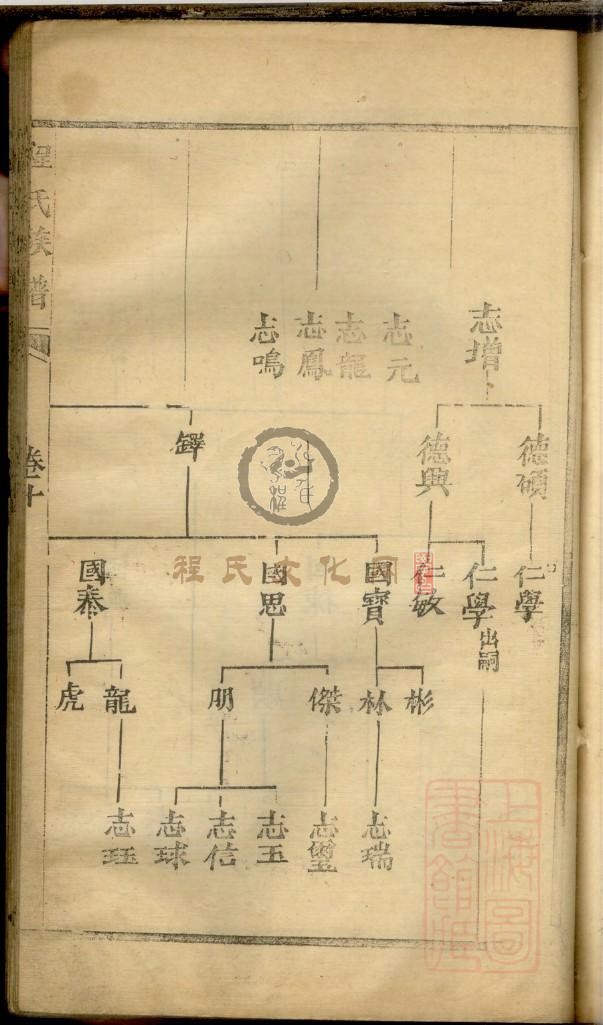 志增
志元
志龍
志鳳
志鳴
德碩
德興
鐸
仁學
仁學出嗣
仁敏
國寶
國思
國泰
彬
林
傑
明
龍
虎
志瑞
志璽
志玉
志信
志球
志珏
程氏族譜
卷十
程氏文化网
上海圖書館藏